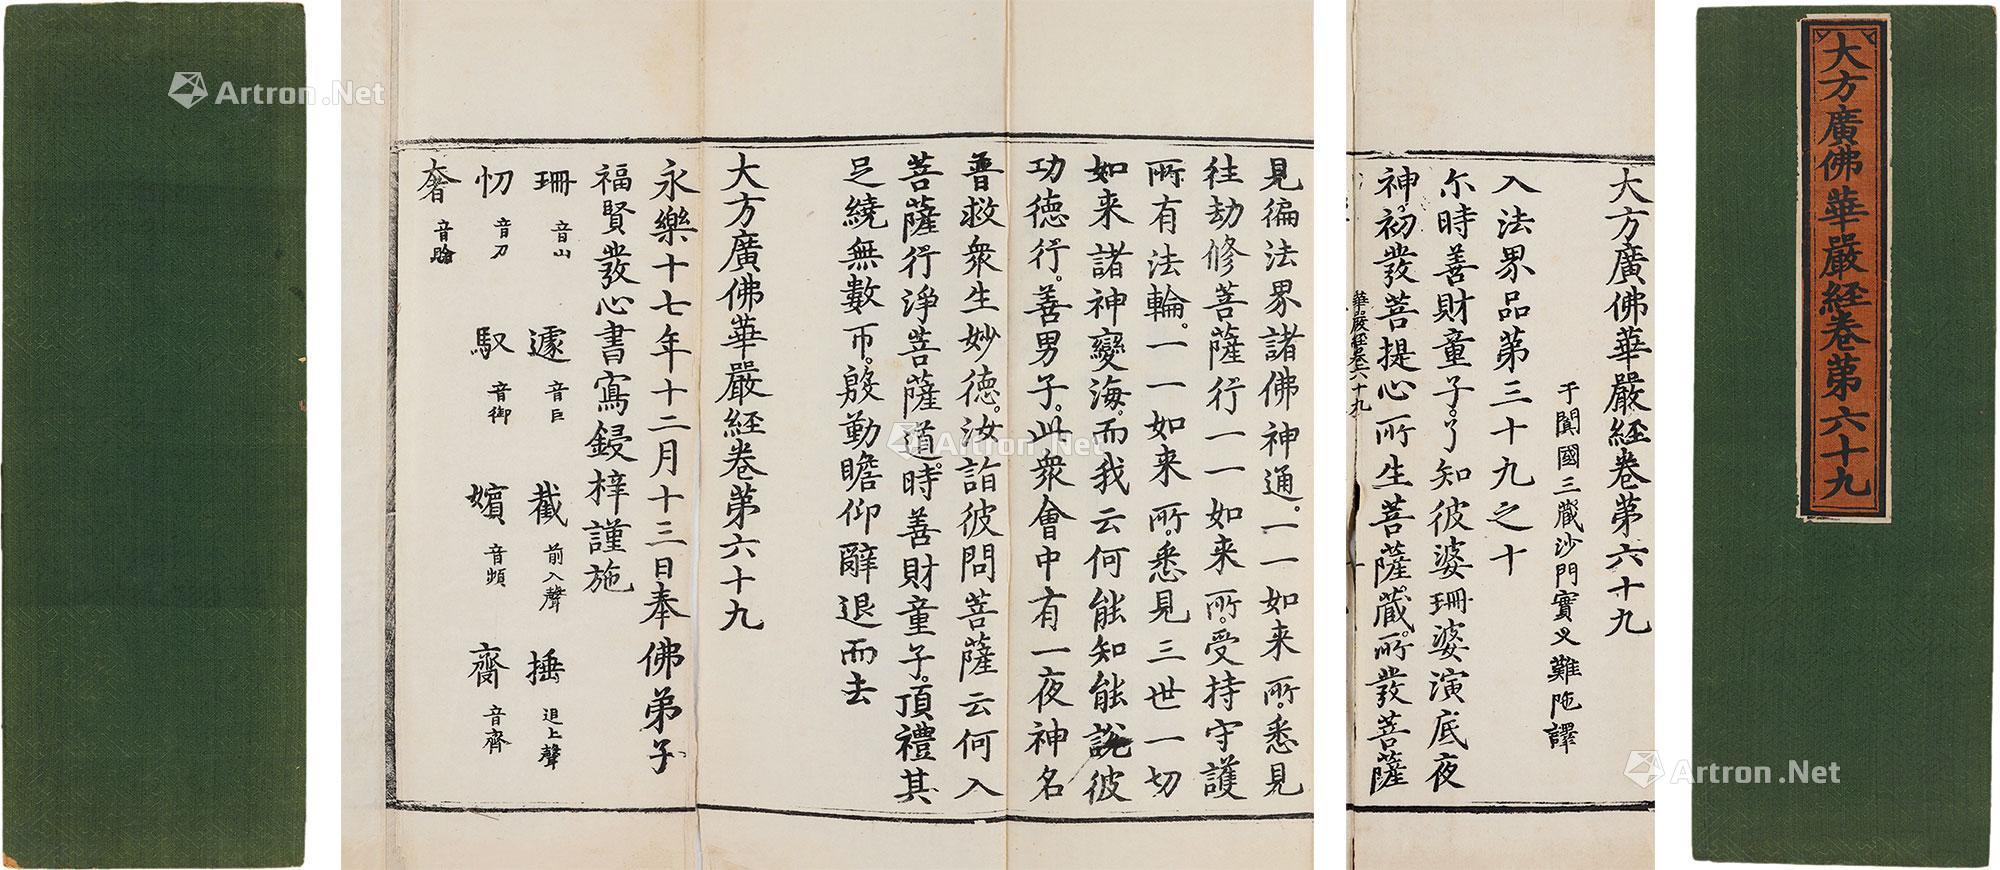 大方廣佛華嚴經卷第六十九
大方廣佛華嚴經卷第六十九
于闐國三藏沙門實叉難陁譯
入法界品第三十九之十
尒時善財童子了知彼婆珊婆演底夜
神初發菩提心所生菩薩藏所發菩薩
華嚴經卷六十九
見徧法界諸佛神通一一如来所悉見
往劫修菩薩行一一如来所受持守護
所有法輪一一如来所悉見三世一切
如来諸神變海而我云何能知能說彼
功德行善男子此衆會中有一夜神名
普救衆生妙德汝詣彼問菩薩云何入
菩薩行淨菩薩道時善財童子頂禮其
足繞無數帀殷勤瞻仰辭退而去
大方廣佛華嚴經卷第六十九
永樂十七年十二月十三日奉佛弟子
福賢發心書寫鋟梓謹施
珊 音山 遽 音巨 截 前入聲 捶 追上聲
忉 音刀 馭 音御 嬪 音頻 齋 音齊
奢 音賒
Artron.Net
Artron.Net
Artron.Net